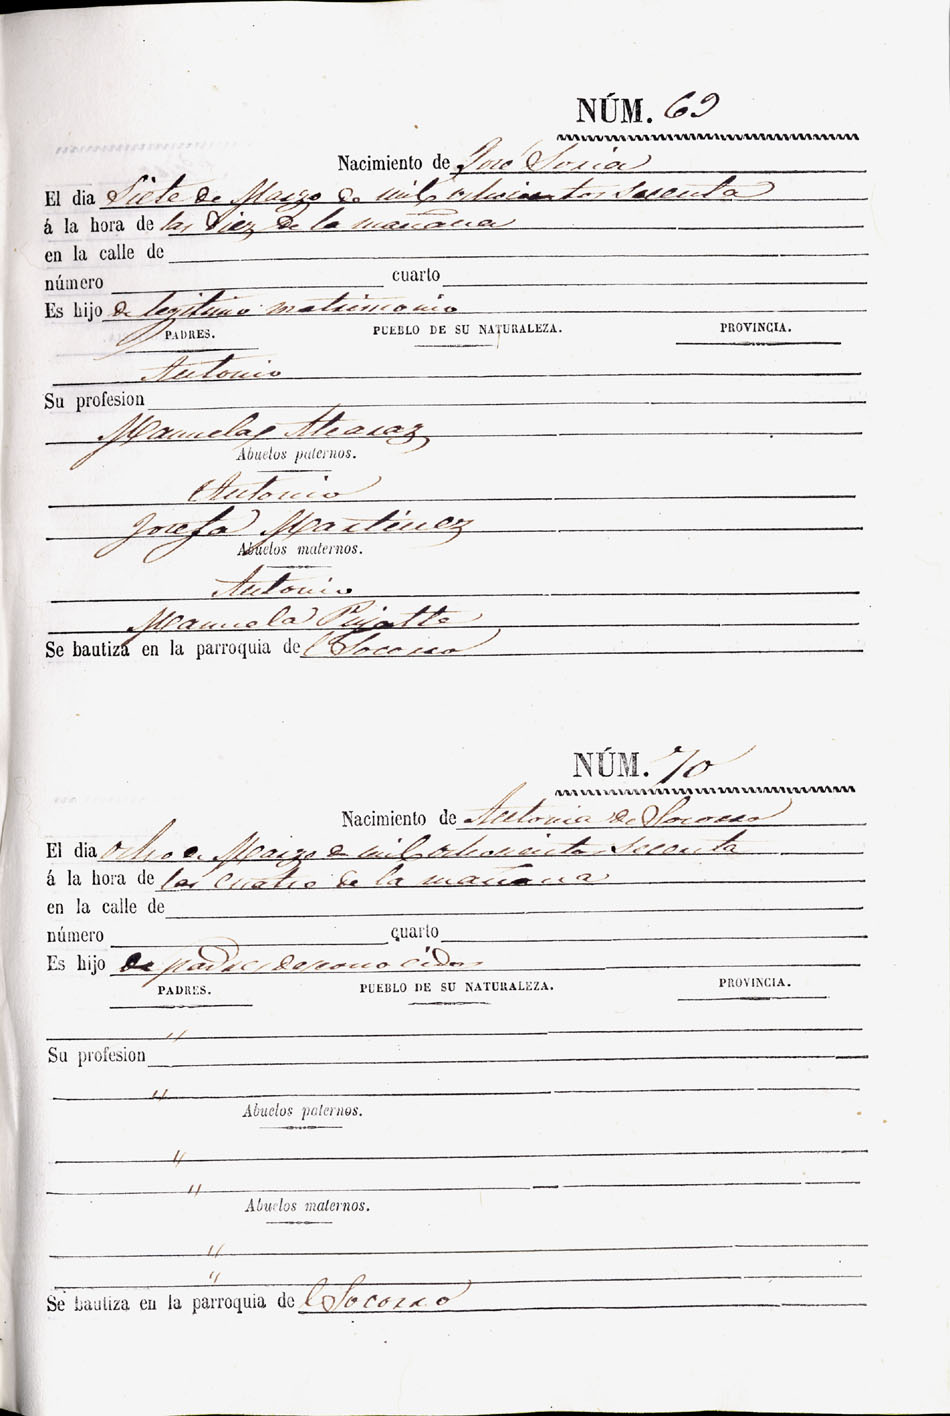 NÚM. 69
Nacimiento de José Soria
El dia Siete de Marzo de mil ochocientos sesenta
á la hora de las diez de la mañana
en la calle de
número cuarto
Es hijo de legitimo matrimonio
PADRES. PUEBLO DE SU NATURALEZA. PROVINCIA.
Antonio
Su profesion
Manuela Alcaraz
Abuelos paternos.
Antonio
Josefa Martinez
Abuelos maternos.
Antonio
Manuela
Se bautiza en la parroquia de l Socorro
NÚM. 70
Nacimiento de Antonia de Socorro
El dia ocho de Marzo de mil ochocientos sesenta
á la hora de las cuatro de la mañana
en la calle de
número cuarto
Es hijo de padres desconocidos
PADRES. PUEBLO DE SU NATURALEZA. PROVINCIA.
"
Su profesion
"
Abuelos paternos.
"
"
Abuelos maternos.
"
"
Se bautiza en la parroquia de l Socorro